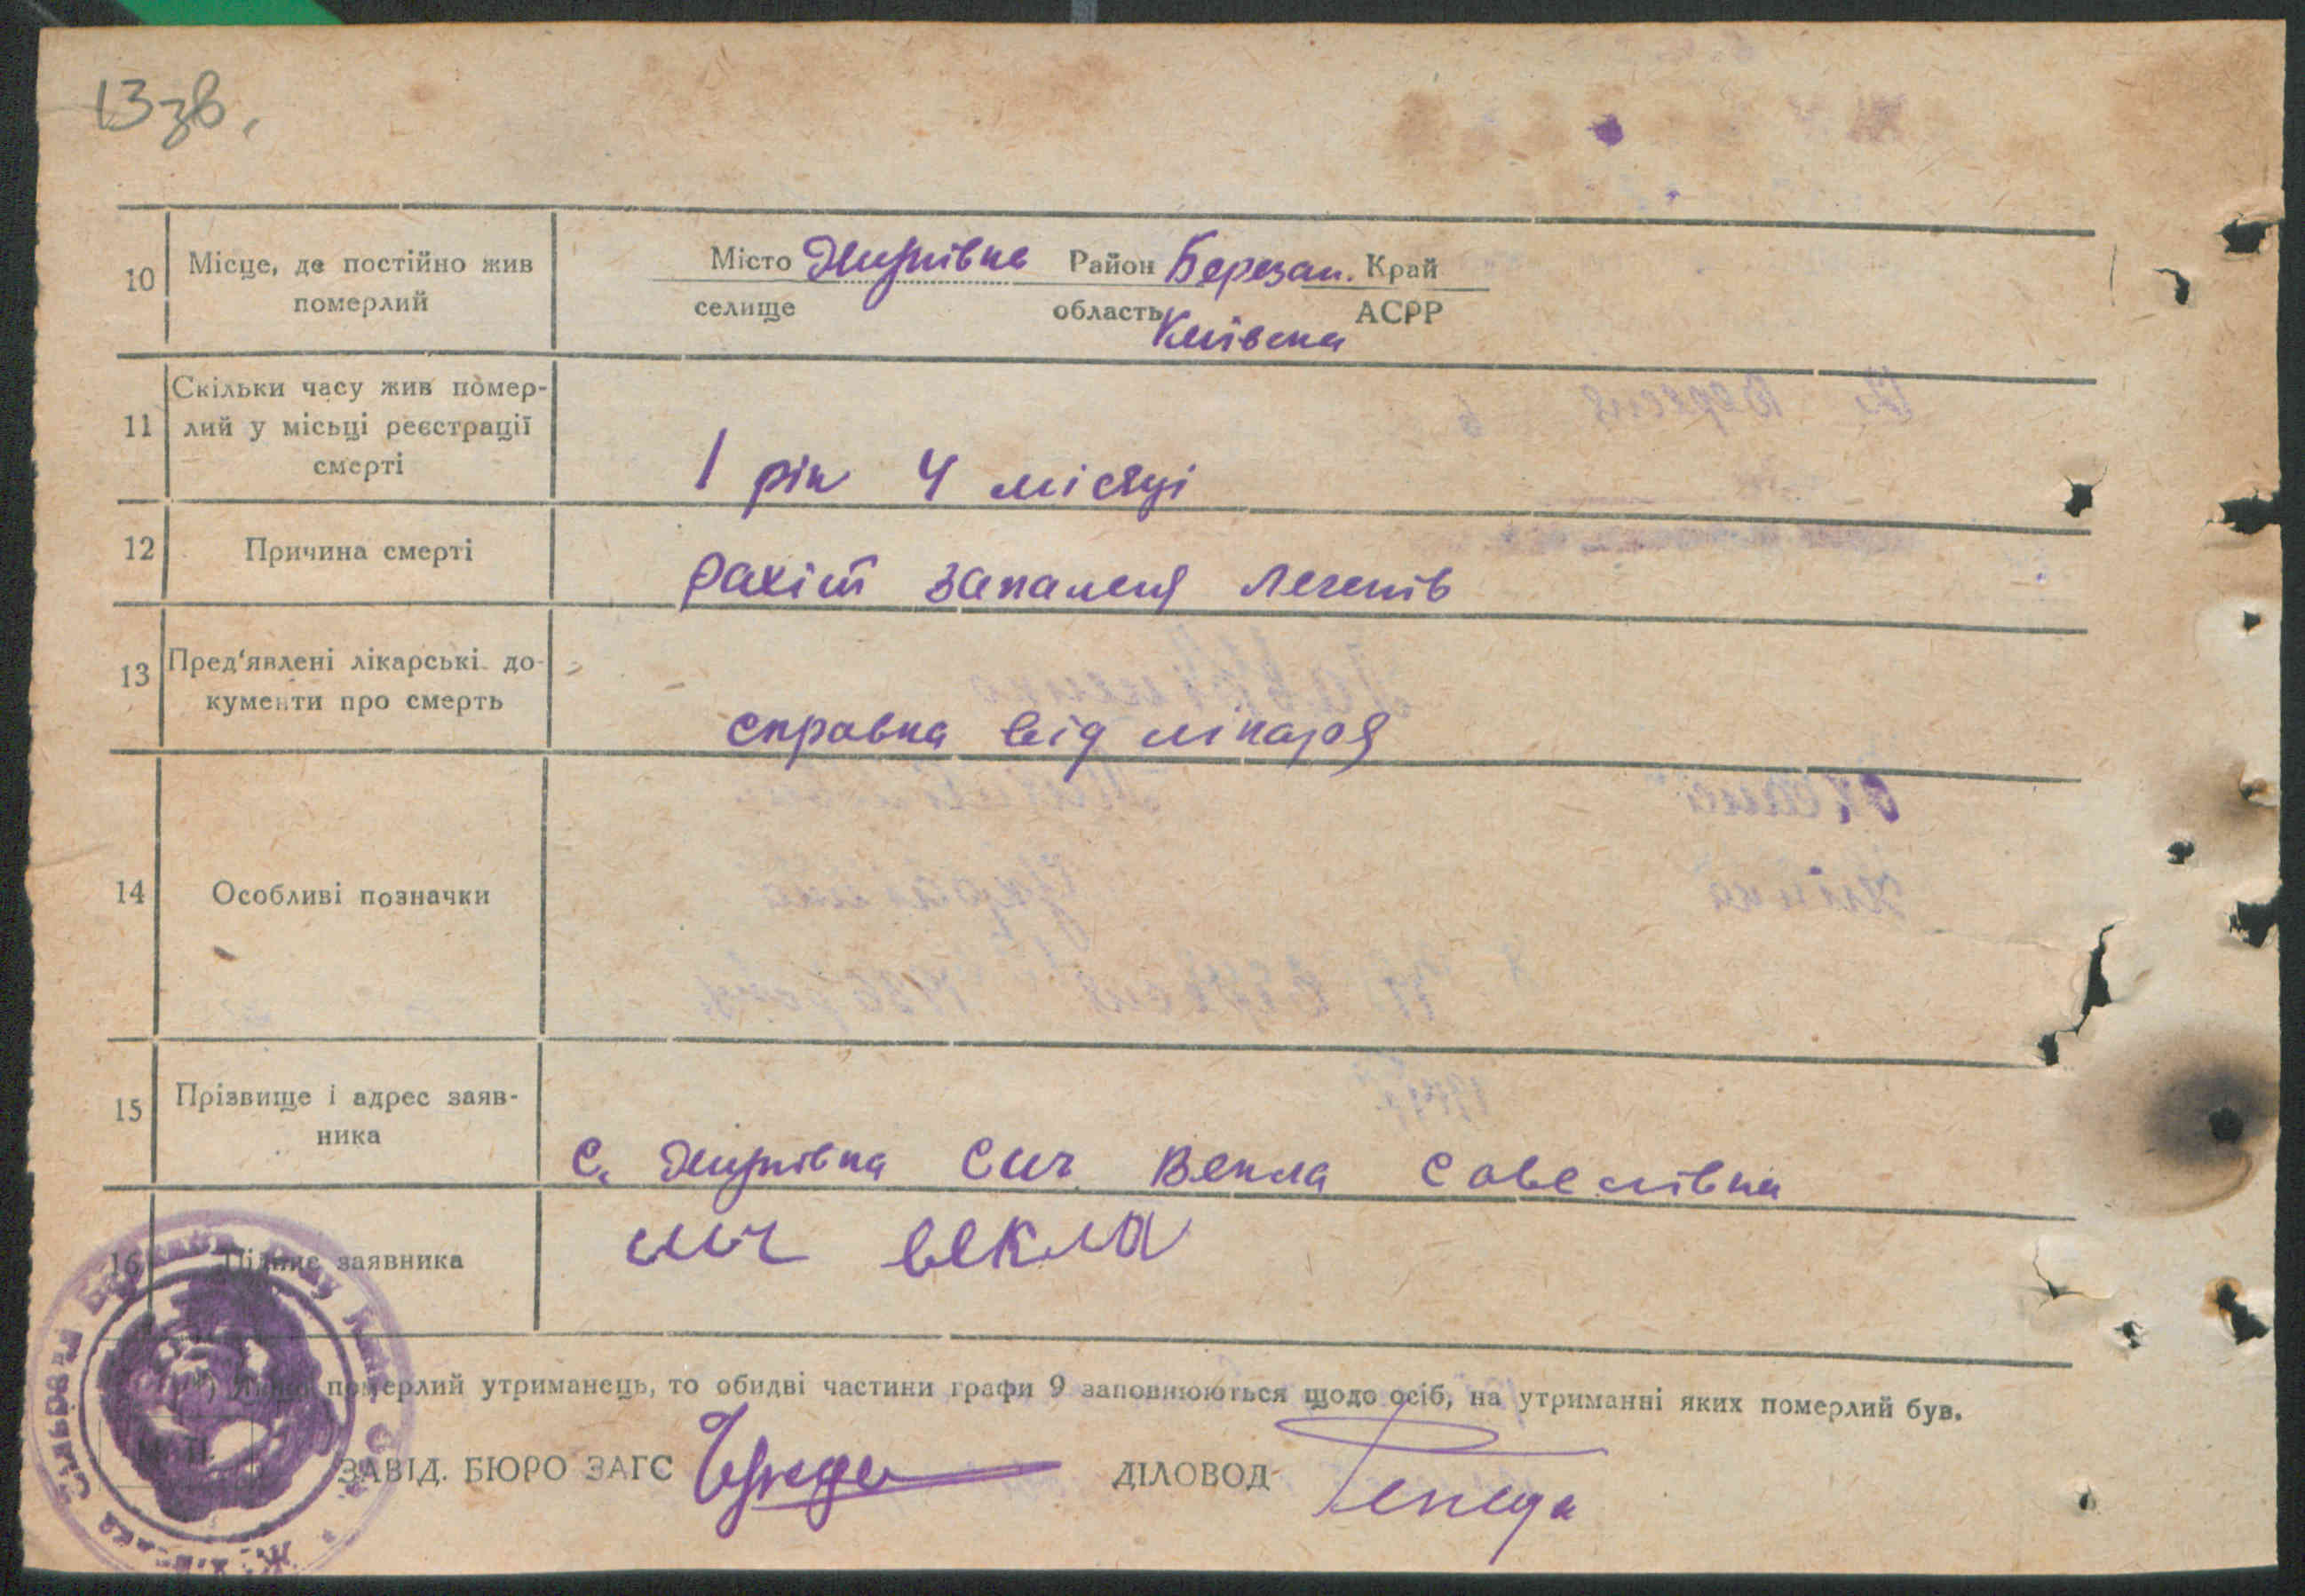 13 зв.
10 Місце, де постійно жив померлий
Місто Жуківка Район Березан. Край
селище область Київська АСРР
11 Скільки часу жив помер-
лий у місьці реєстрації
смерті
1 рік 4 місяці
12 Причина смерті
рахіт запаленя легенів
13 Пред'явлені лікарські до-
кументи про смерть
справка від лікаря
14 Особливі позначки
15 Прізвище і адрес заяв-
ника
с. Жуківка Сич Векла Савелівна
16 Підпис заявника
сич векла
*) Якщо померлий утриманець, то обидві частини графи 9 заповнюються щодо осіб, на утриманні яких померлий був.
М. П.
ЗАВІД. БЮРО ЗАГС
ДІЛОВОД